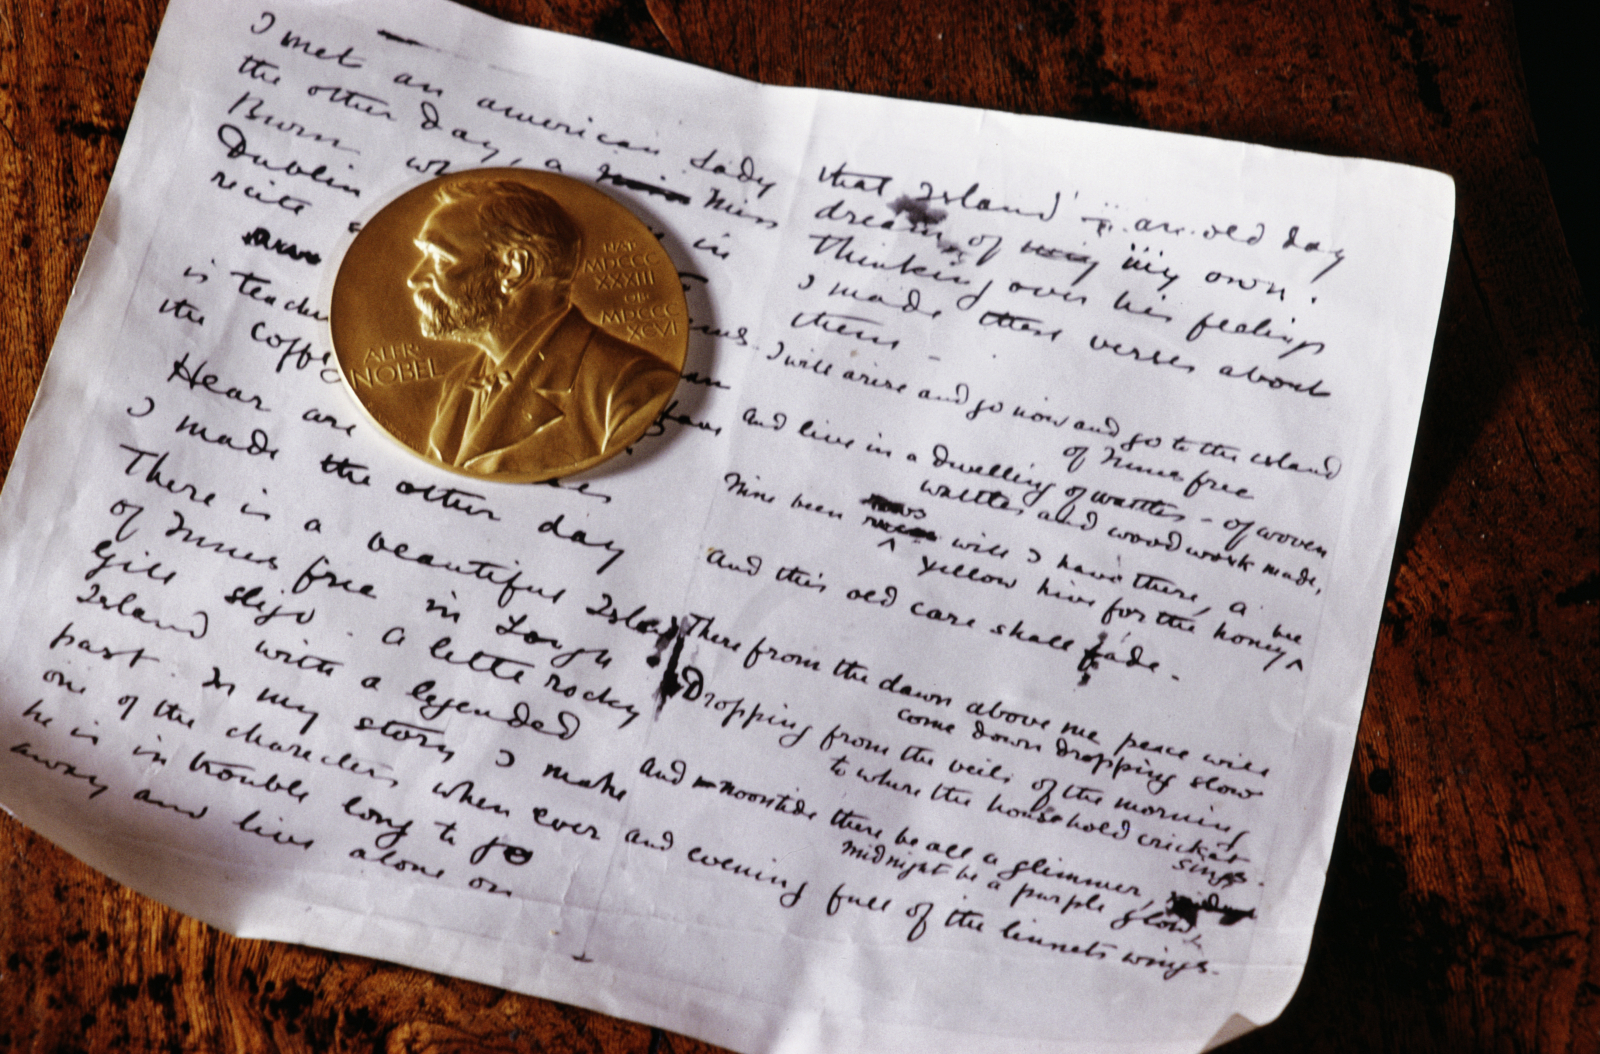 I met an american Lady
the other day, a Miss
Burn in
Dublin
recite
is teach
the coff
Hear are
I made the other day
There is a beautiful Island
of Innis free in Lough
Gill Sligo. A little rocky
Island with a legended
past. In my story I make
one of the characters when ever
he is in trouble long to go
away and live alone on
ALFR·
NOBEL
NAT·
MDCCC
XXXIII
OB·
MDCCC
XCVI
that Island – an old day
dream of my own.
Thinking over his feelings
I made these verses about
them –
I will arise and go now and go to the island
of Innis free
And live in a dwelling of wattles – of woven
wattles and wood work made,
Nine been rows will I have there, a
yellow hive for the honey bee
And this old care shall fade.
There from the dawn above me peace will
come down dropping slow
Dropping from the veils of the morning
to where the household cricket
sings.
And noontide there be all a glimmer,
midnight be a purple glow
and evening full of the linnets wings.